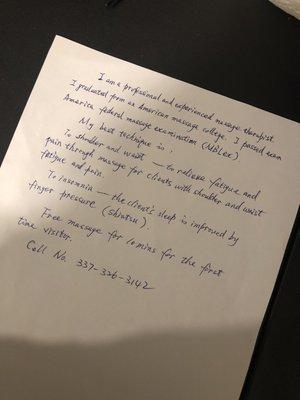 I am a professional and experienced massage therapist.
I graduated form an American massage college. I passed exam
America federal massage examination (MBLEx)
My best technique is :
To shoulder and waist — to relieve fatigue and
pain through massage for clients with shoulder and waist
fatigue and pain.
To insomnia — the client's sleep is improved by
finger pressure (shiatsu).
Free massage for comins for the first
time visitor.
Call No. 337-326-3142